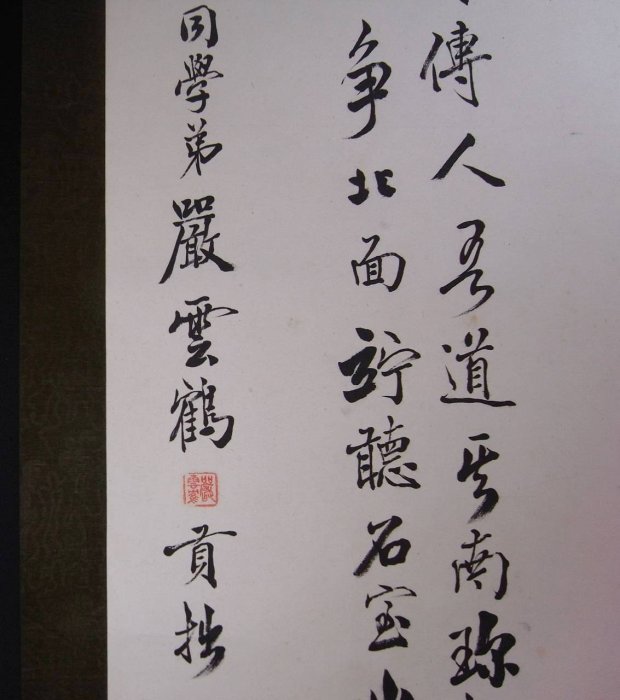 傳人吾道其南珎
争北面竚聽石室
同學弟嚴雲鶴貢拙